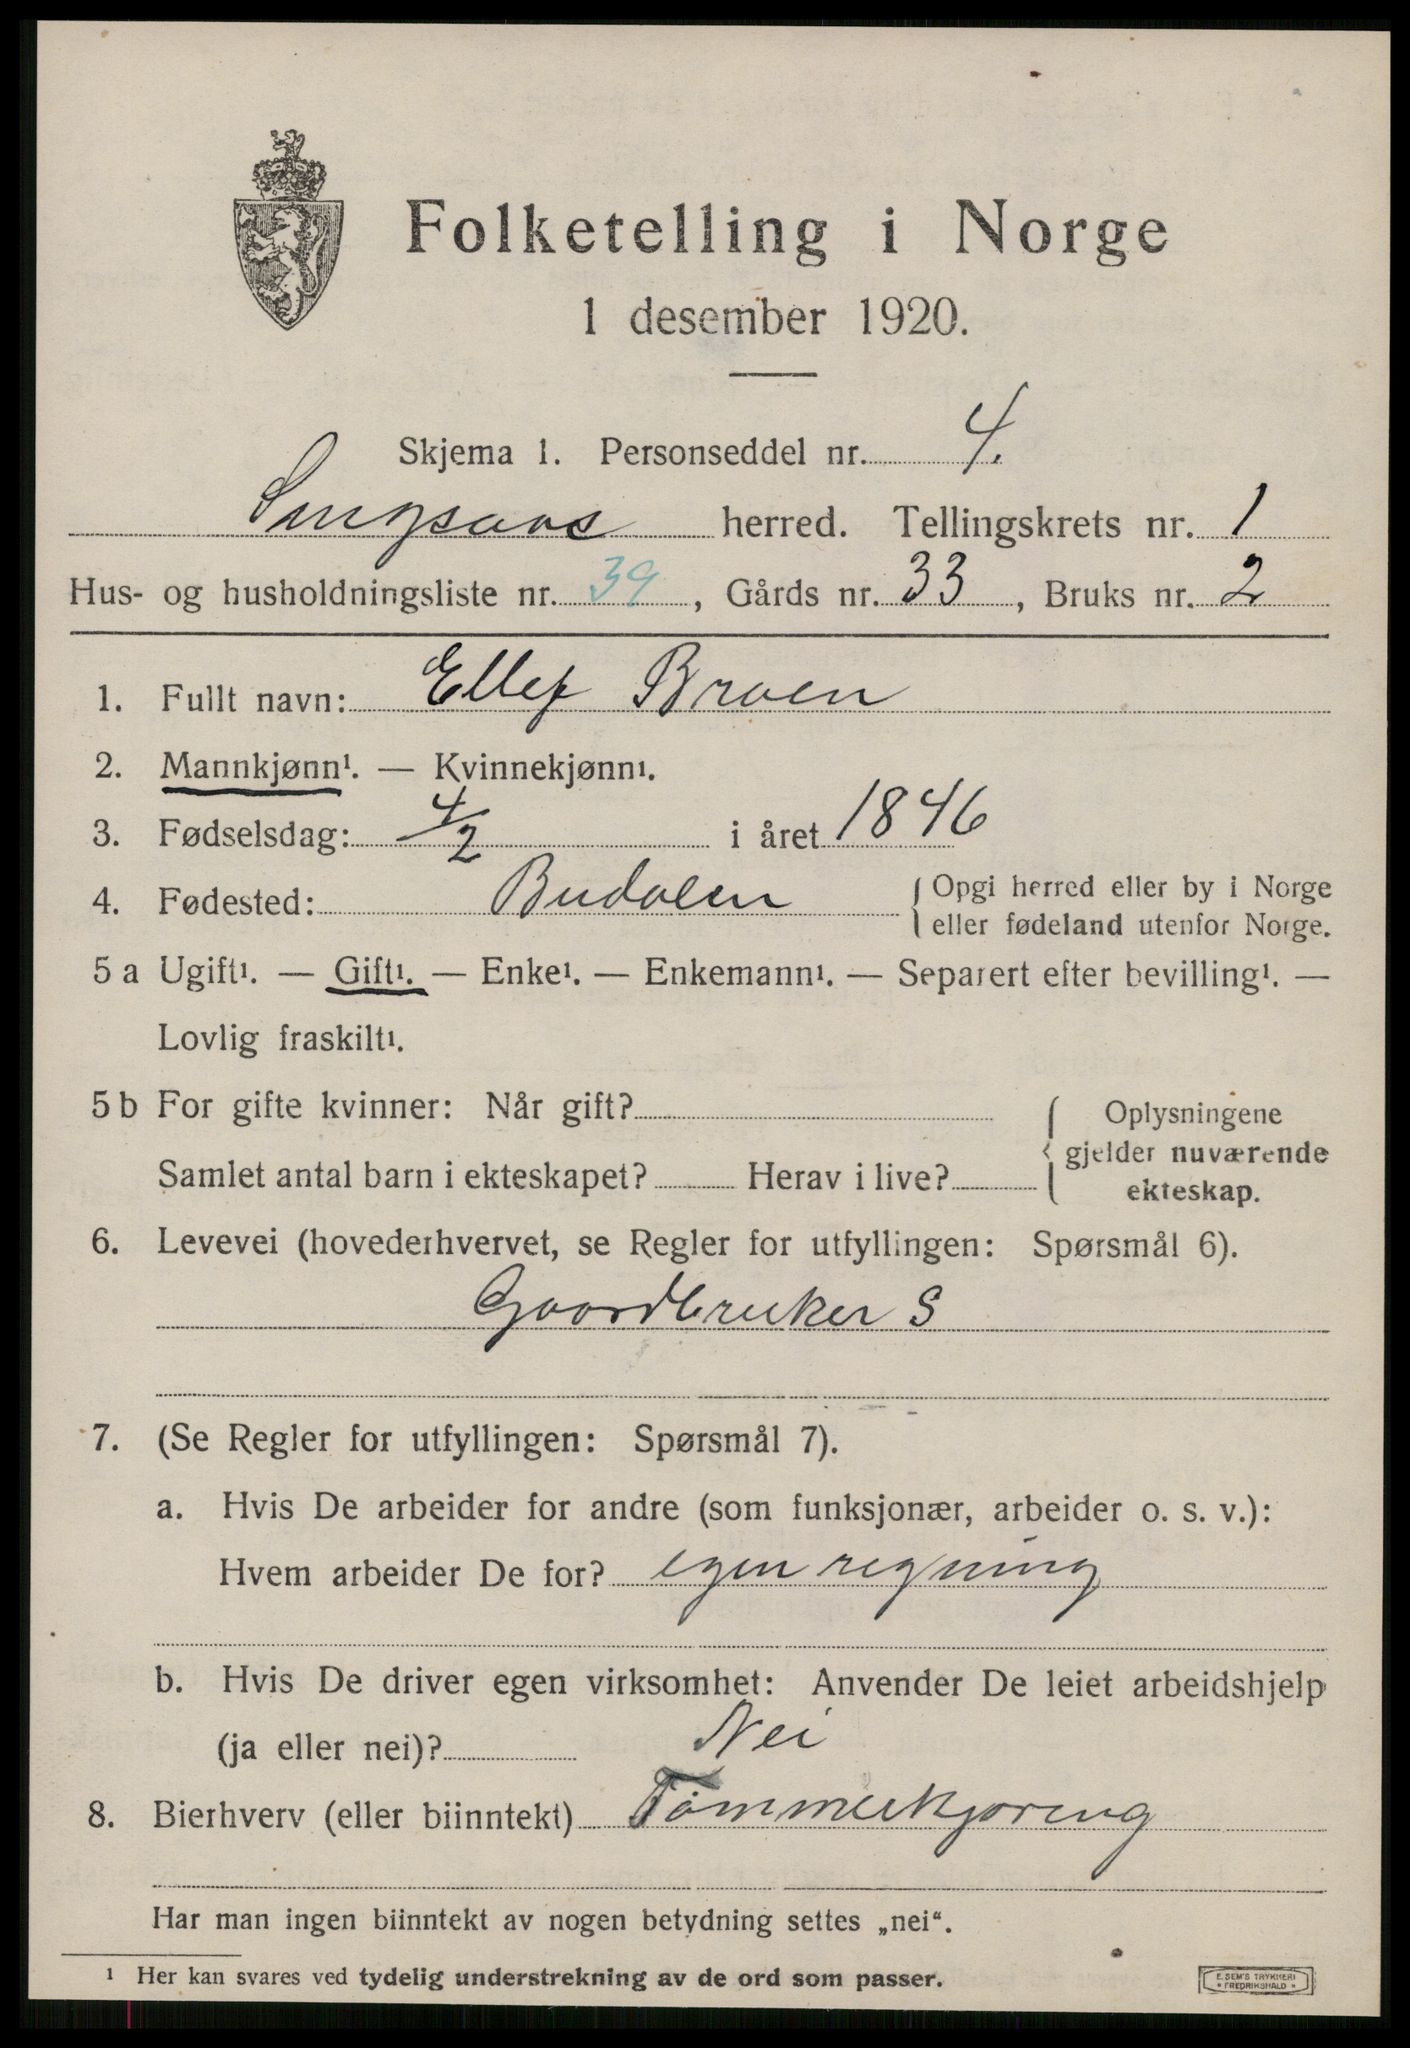 Folketelling i Norge
1 desember 1920.
Skjema 1. Personseddel nr. 4.
Singsaas herred. Tellingskrets nr. 1
Hus- og husholdningsliste nr. 39, Gårds nr. 33, Bruks nr. 2
1. Fullt navn: Ellef Broen
2. Mannkjønn¹. — Kvinnekjønn¹.
3. Fødselsdag: 4/2 i året 1846
4. Fødested: Budalen { Opgi herred eller by i Norge
eller fødeland utenfor Norge.
5 a Ugift¹. — Gift¹. — Enke¹. — Enkemann¹. — Separert efter bevilling¹. —
Lovlig fraskilt¹.
5 b For gifte kvinner: Når gift? { Oplysningene
gjelder nuværende
Samlet antal barn i ekteskapet? Herav i live? ekteskap.
6. Levevei (hovederhvervet, se Regler for utfyllingen: Spørsmål 6).
Gaardbruker S
7. (Se Regler for utfyllingen: Spørsmål 7).
a. Hvis De arbeider for andre (som funksjonær, arbeider o. s. v.):
Hvem arbeider De for? egen regning
b. Hvis De driver egen virksomhet: Anvender De leiet arbeidshjelp
(ja eller nei)? Nei
8. Bierhverv (eller biinntekt) Tømmerkjøring
Har man ingen biinntekt av nogen betydning settes „nei“.
¹ Her kan svares ved tydelig understrekning av de ord som passer.
E. SEM'S TRYKKERI
* FREDRIKSHALD *